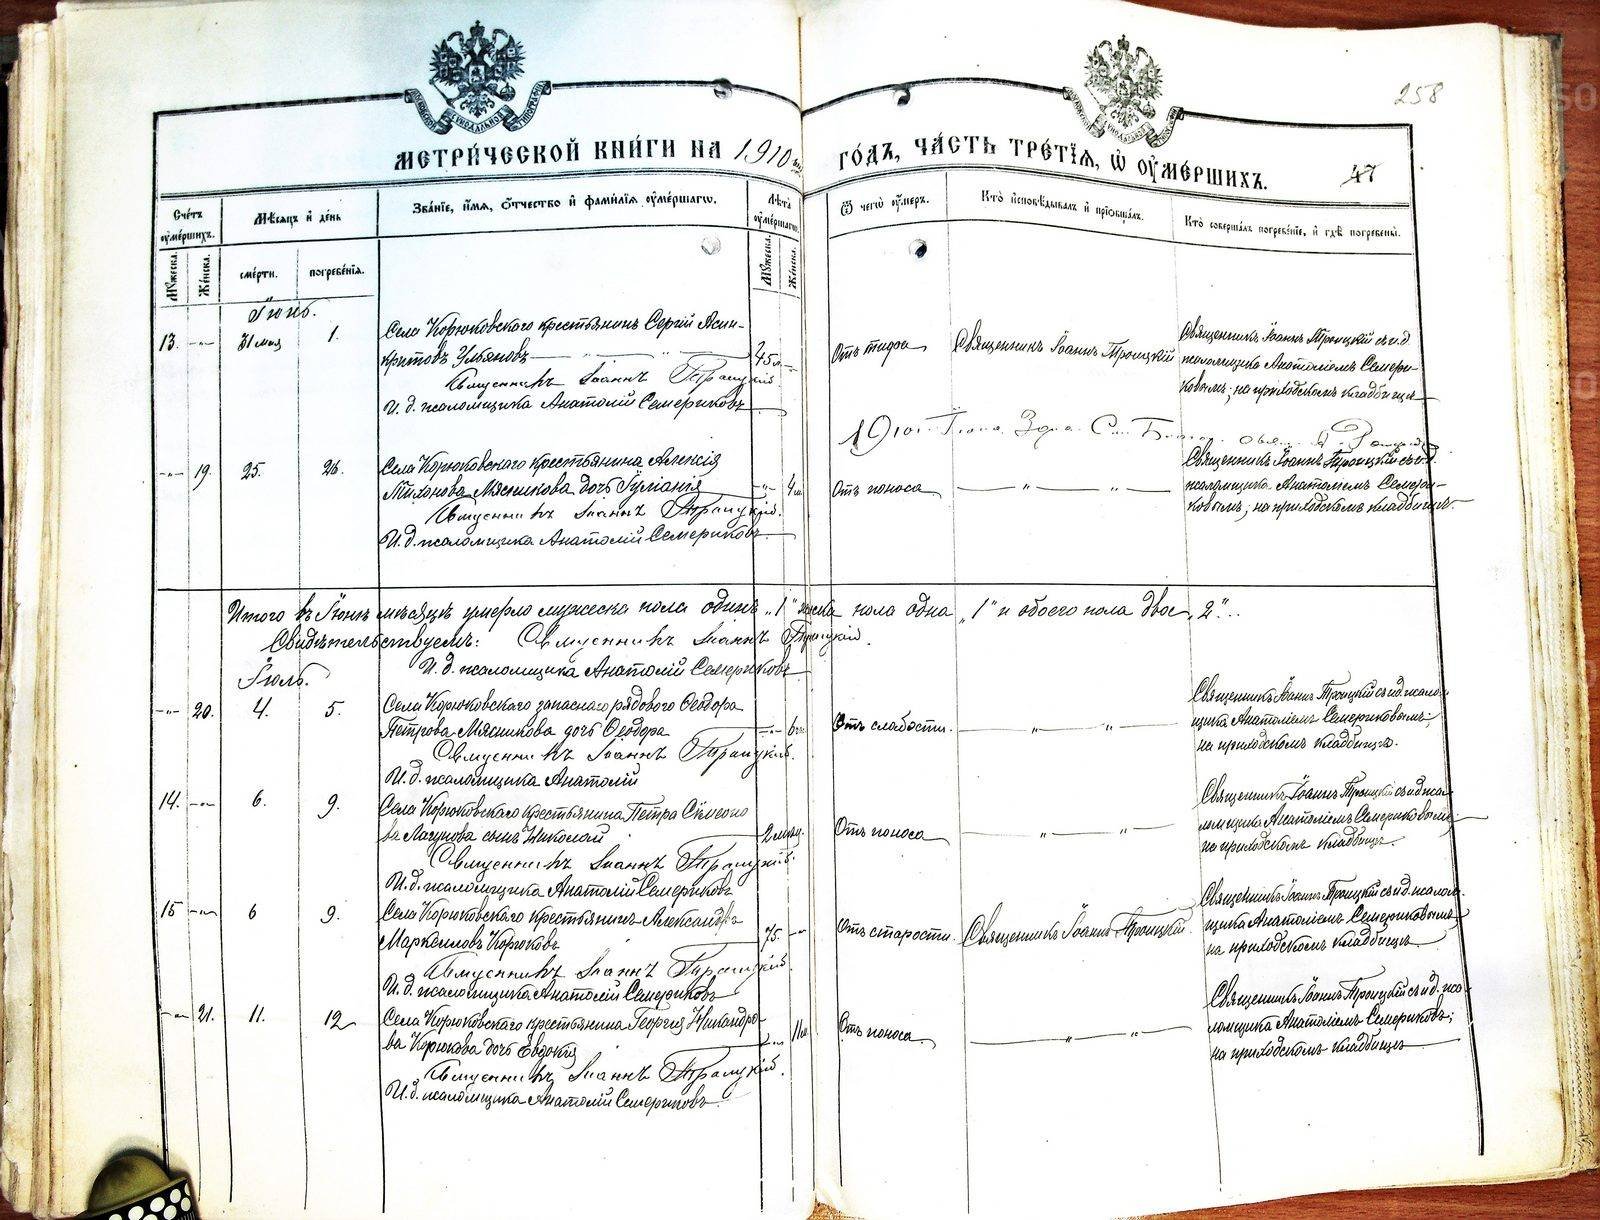 258
МЕТРИ́ЧЕСКОЙ КНИ́ГИ НА 1910
ГО́ДЪ, ЧА́СТЬ ТРЕ́ТІѦ, Ѡ ОУ҆МЕ́РШИХЪ.
47
Сче́тъ оу҆ме́ршихъ.
Мѣ́сяцъ и де́нь
Зва́ніе, и҆́мя, ѻ҆́тчество и҆ фами́лія оу҆ме́ршагѡ.
Лѣ́та оу҆ме́ршагѡ.
Ѿ чегѡ̀ оу҆́меръ.
Кто̀ и҆сповѣ́дывалъ и҆ пріѡбща́лъ.
Кто̀ соверша́лъ погребе́ніе, и҆ гдѣ̀ погребены̀.
Му́жеска.
Же́нска.
сме́рти.
погребе́нія.
Му́жеска.
Же́нска.
Іюнь.
13. -"- 31 мая 1.
Села Корюковского крестьянинъ Сергій Асин-
критовъ Ульяновъ
45 л.
Священникъ Іоаннъ Троицкій
И. д. псаломщика Анатолій Семериковъ
Отъ тифа
Священникъ Іоаннъ Троицкій
Священникъ Іоаннъ Троицкій съ и.д.
псаломщика Анатоліемъ Семери-
ковымъ; на приходскомъ кладбищѣ
-"- 19. 25. 26.
Села Корюковскаго крестьянина Алексія
Мясникова дочь Іуліанія
Священникъ Іоаннъ Троицкій.
И. д. псаломщика Анатолій Семериковъ
Отъ поноса
Священникъ Іоаннъ Троицкій съ и.д.
псаломщика Анатоліемъ Семери-
ковымъ; на приходскомъ кладбищѣ.
Итого въ Іюнѣ мѣсяцѣ умерло мужеска пола одинъ „1" женска пола одна „1" и обоего пола двое „2"..
Свидѣтельствуемъ: Священникъ Іоаннъ Троицкій.
И. д. псаломщика Анатолій Семериковъ
Іюль.
-"- 20. 4. 5.
Села Корюковскаго запаснаго рядового Ѳеодора
Петрова Мясникова дочь Ѳеодора
Священникъ Іоаннъ Троицкій.
И. д. псаломщика Анатолій
Отъ слабости.
Священникъ Іоаннъ Троицкій съ и.д. псалом-
щика Анатоліемъ Семериковымъ;
на приходскомъ кладбищѣ.
14. -"- 6. 9.
Села Корюковскаго крестьянина Петра Сѵмеоно
ва Лагунова сынъ Николай
2 мѣс.
Священникъ Іоаннъ Троицкій.
И. д. псаломщика Анатолій Семериковъ
Отъ поноса
Священникъ Іоаннъ Троицкій съ и.д. пса-
ломщика Анатоліемъ Семериковымъ
на приходскомъ кладбищѣ.
15 -"- 6 9.
Села Корюковскаго крестьянинъ Александръ
Маркелловъ Корюковъ
75.
Священникъ Іоаннъ Троицкій.
И. д. псаломщика Анатолій Семериковъ
Отъ старости.
Священникъ Іоаннъ Троицкій.
Священникъ Іоаннъ Троицкій съ и.д. псалом-
щика Анатоліемъ Семериковымъ,
на приходскомъ кладбищѣ
-"- 21. 11. 12
Села Корюковскаго крестьянина Георгія Никандро-
ва Корюкова дочь Евдокія
Священникъ Іоаннъ Троицкій.
И. д. псаломщика Анатолій Семериковъ.
Отъ поноса
Священникъ Іоаннъ Троицкій съ и.д. пса-
ломщика Анатоліемъ Семериковъ;
на приходскомъ кладбищѣ